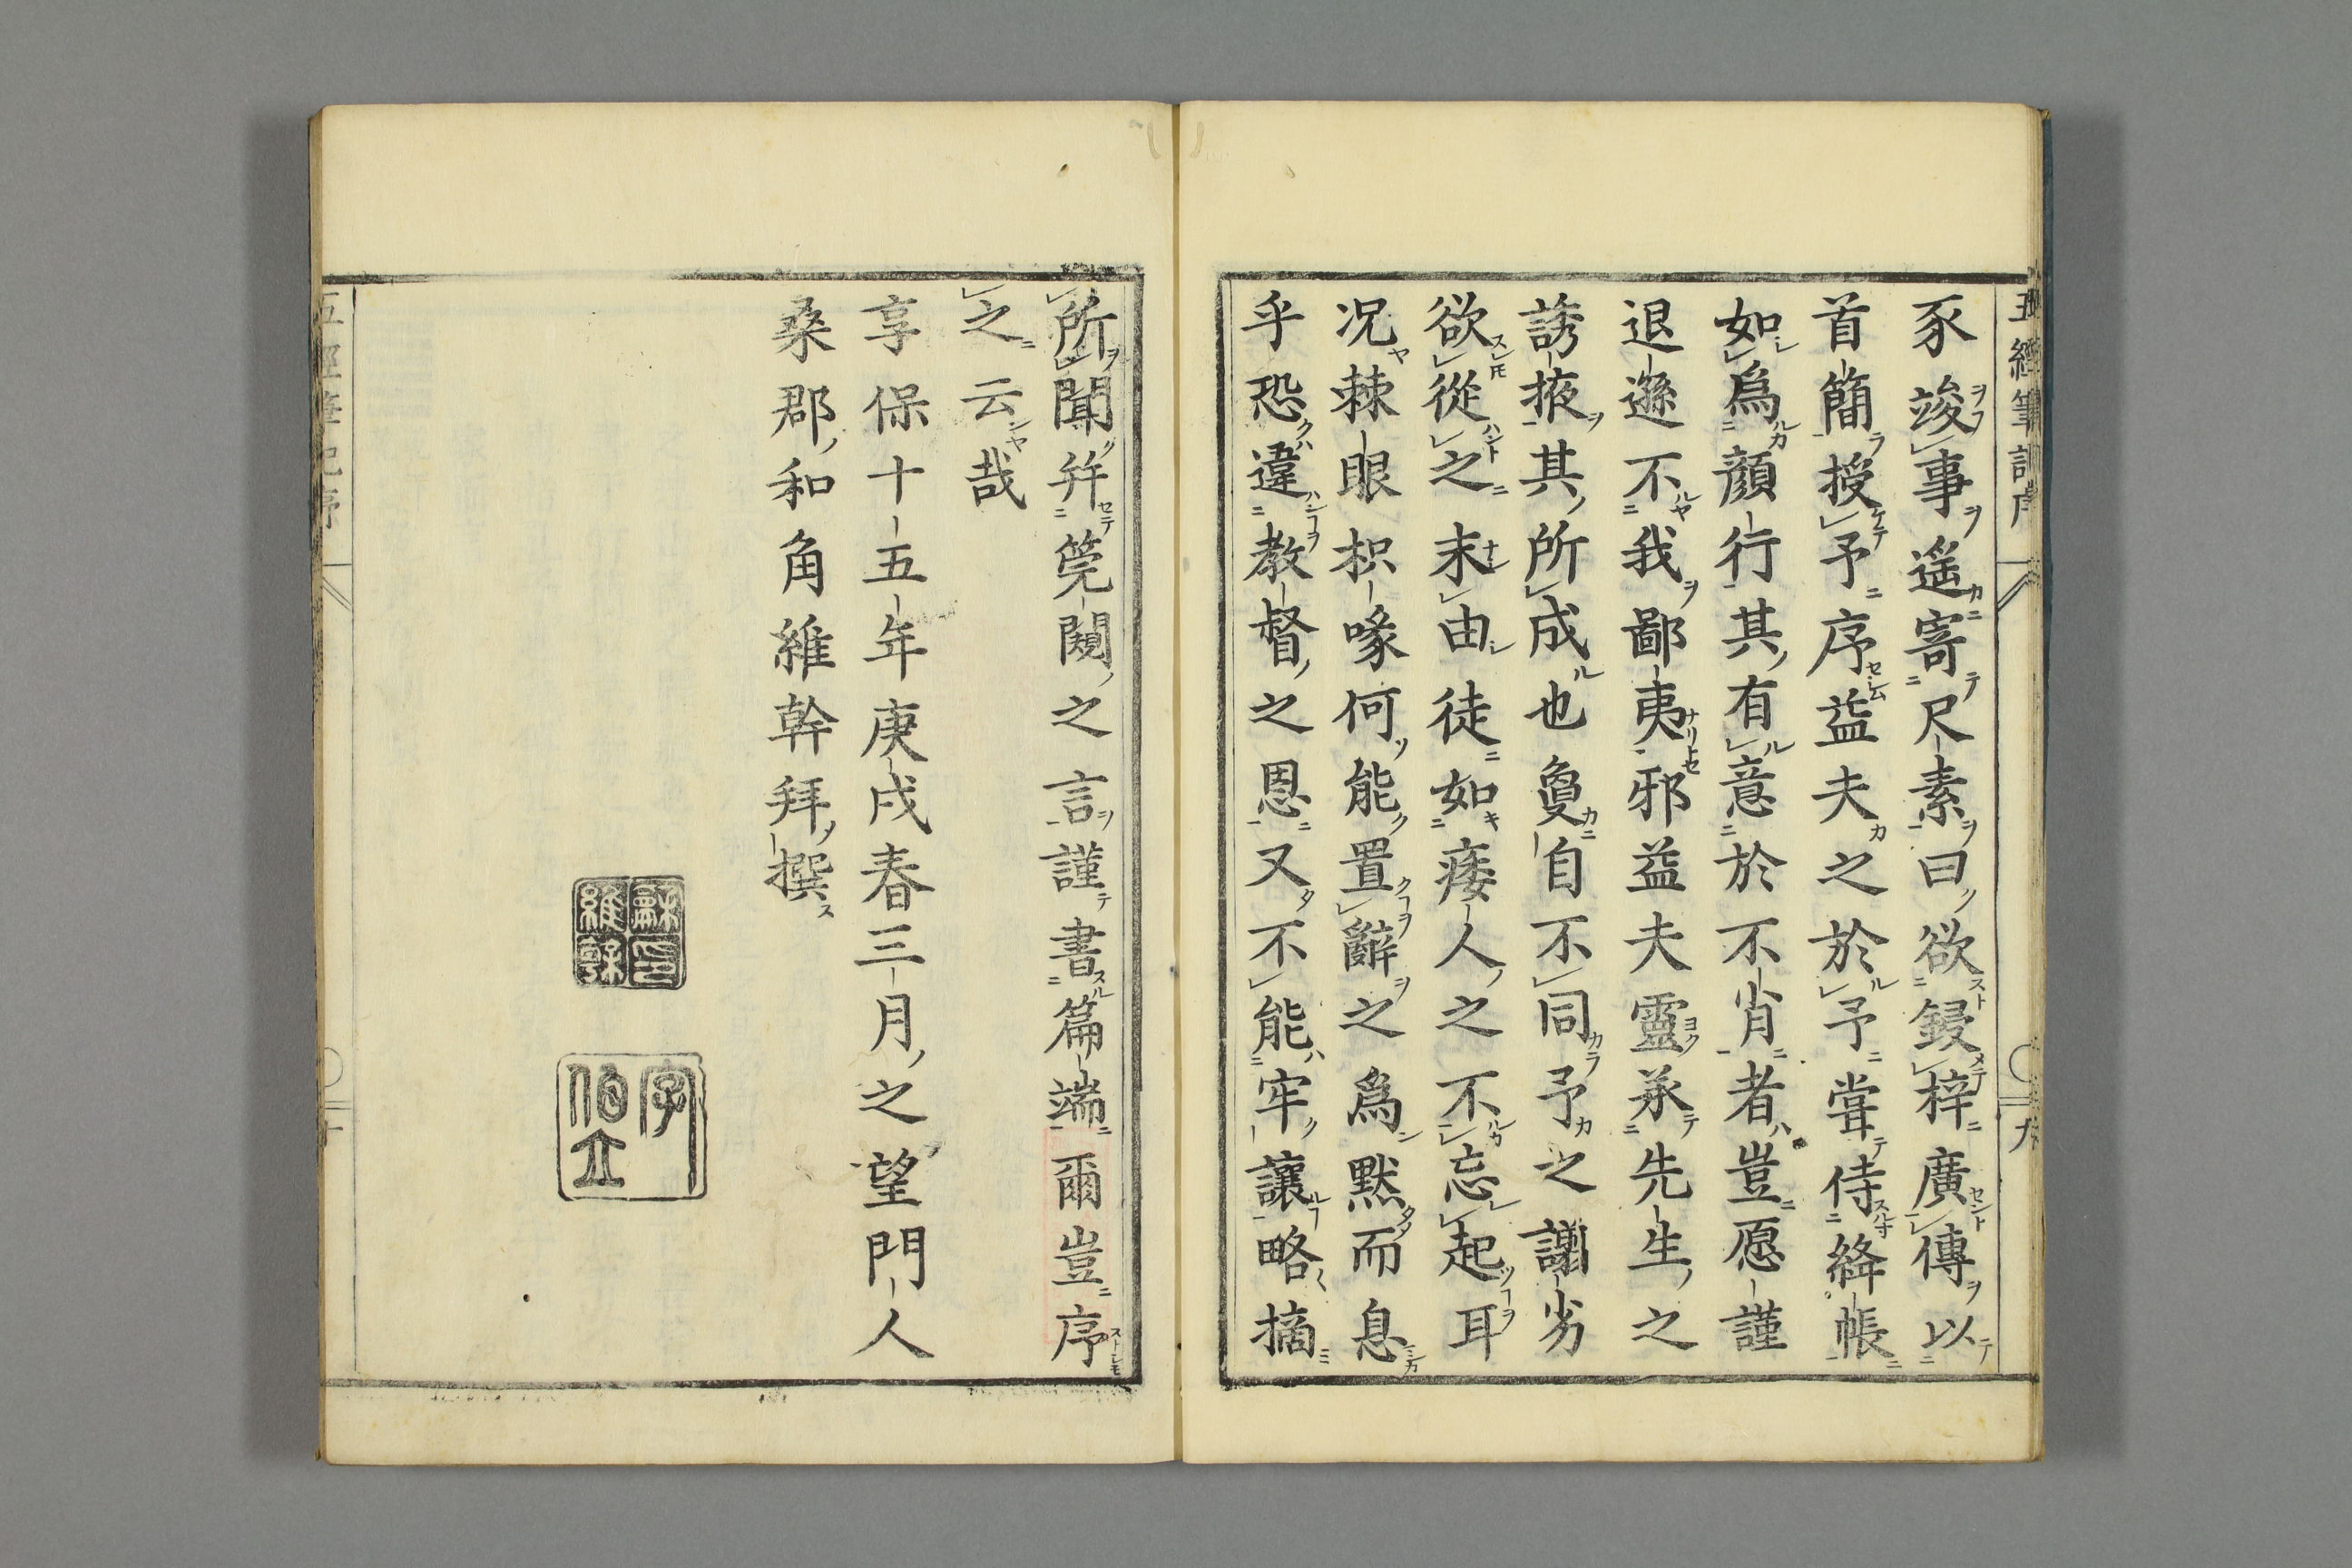 五經筆記序
九
豕竣事遥寄尺素曰欲鋟梓廣傳以
首簡授予序益夫之於予嘗侍絳帳
如爲顔行其有意於不肖者豈愿謹
退遜不我鄙夷邪益夫靈承先生之
誘掖其所成也敻自不同予之謭劣
欲從之末由徒如痿人之不忘起耳
况棘眼枳喙何能置辭之爲默而息
乎恐違教督之恩又不能牢讓略摘
所聞并筦闚之言謹書篇端爾豈序
之云哉
享保十五年庚戌春三月之望門人
桑郡和角維幹拜撰